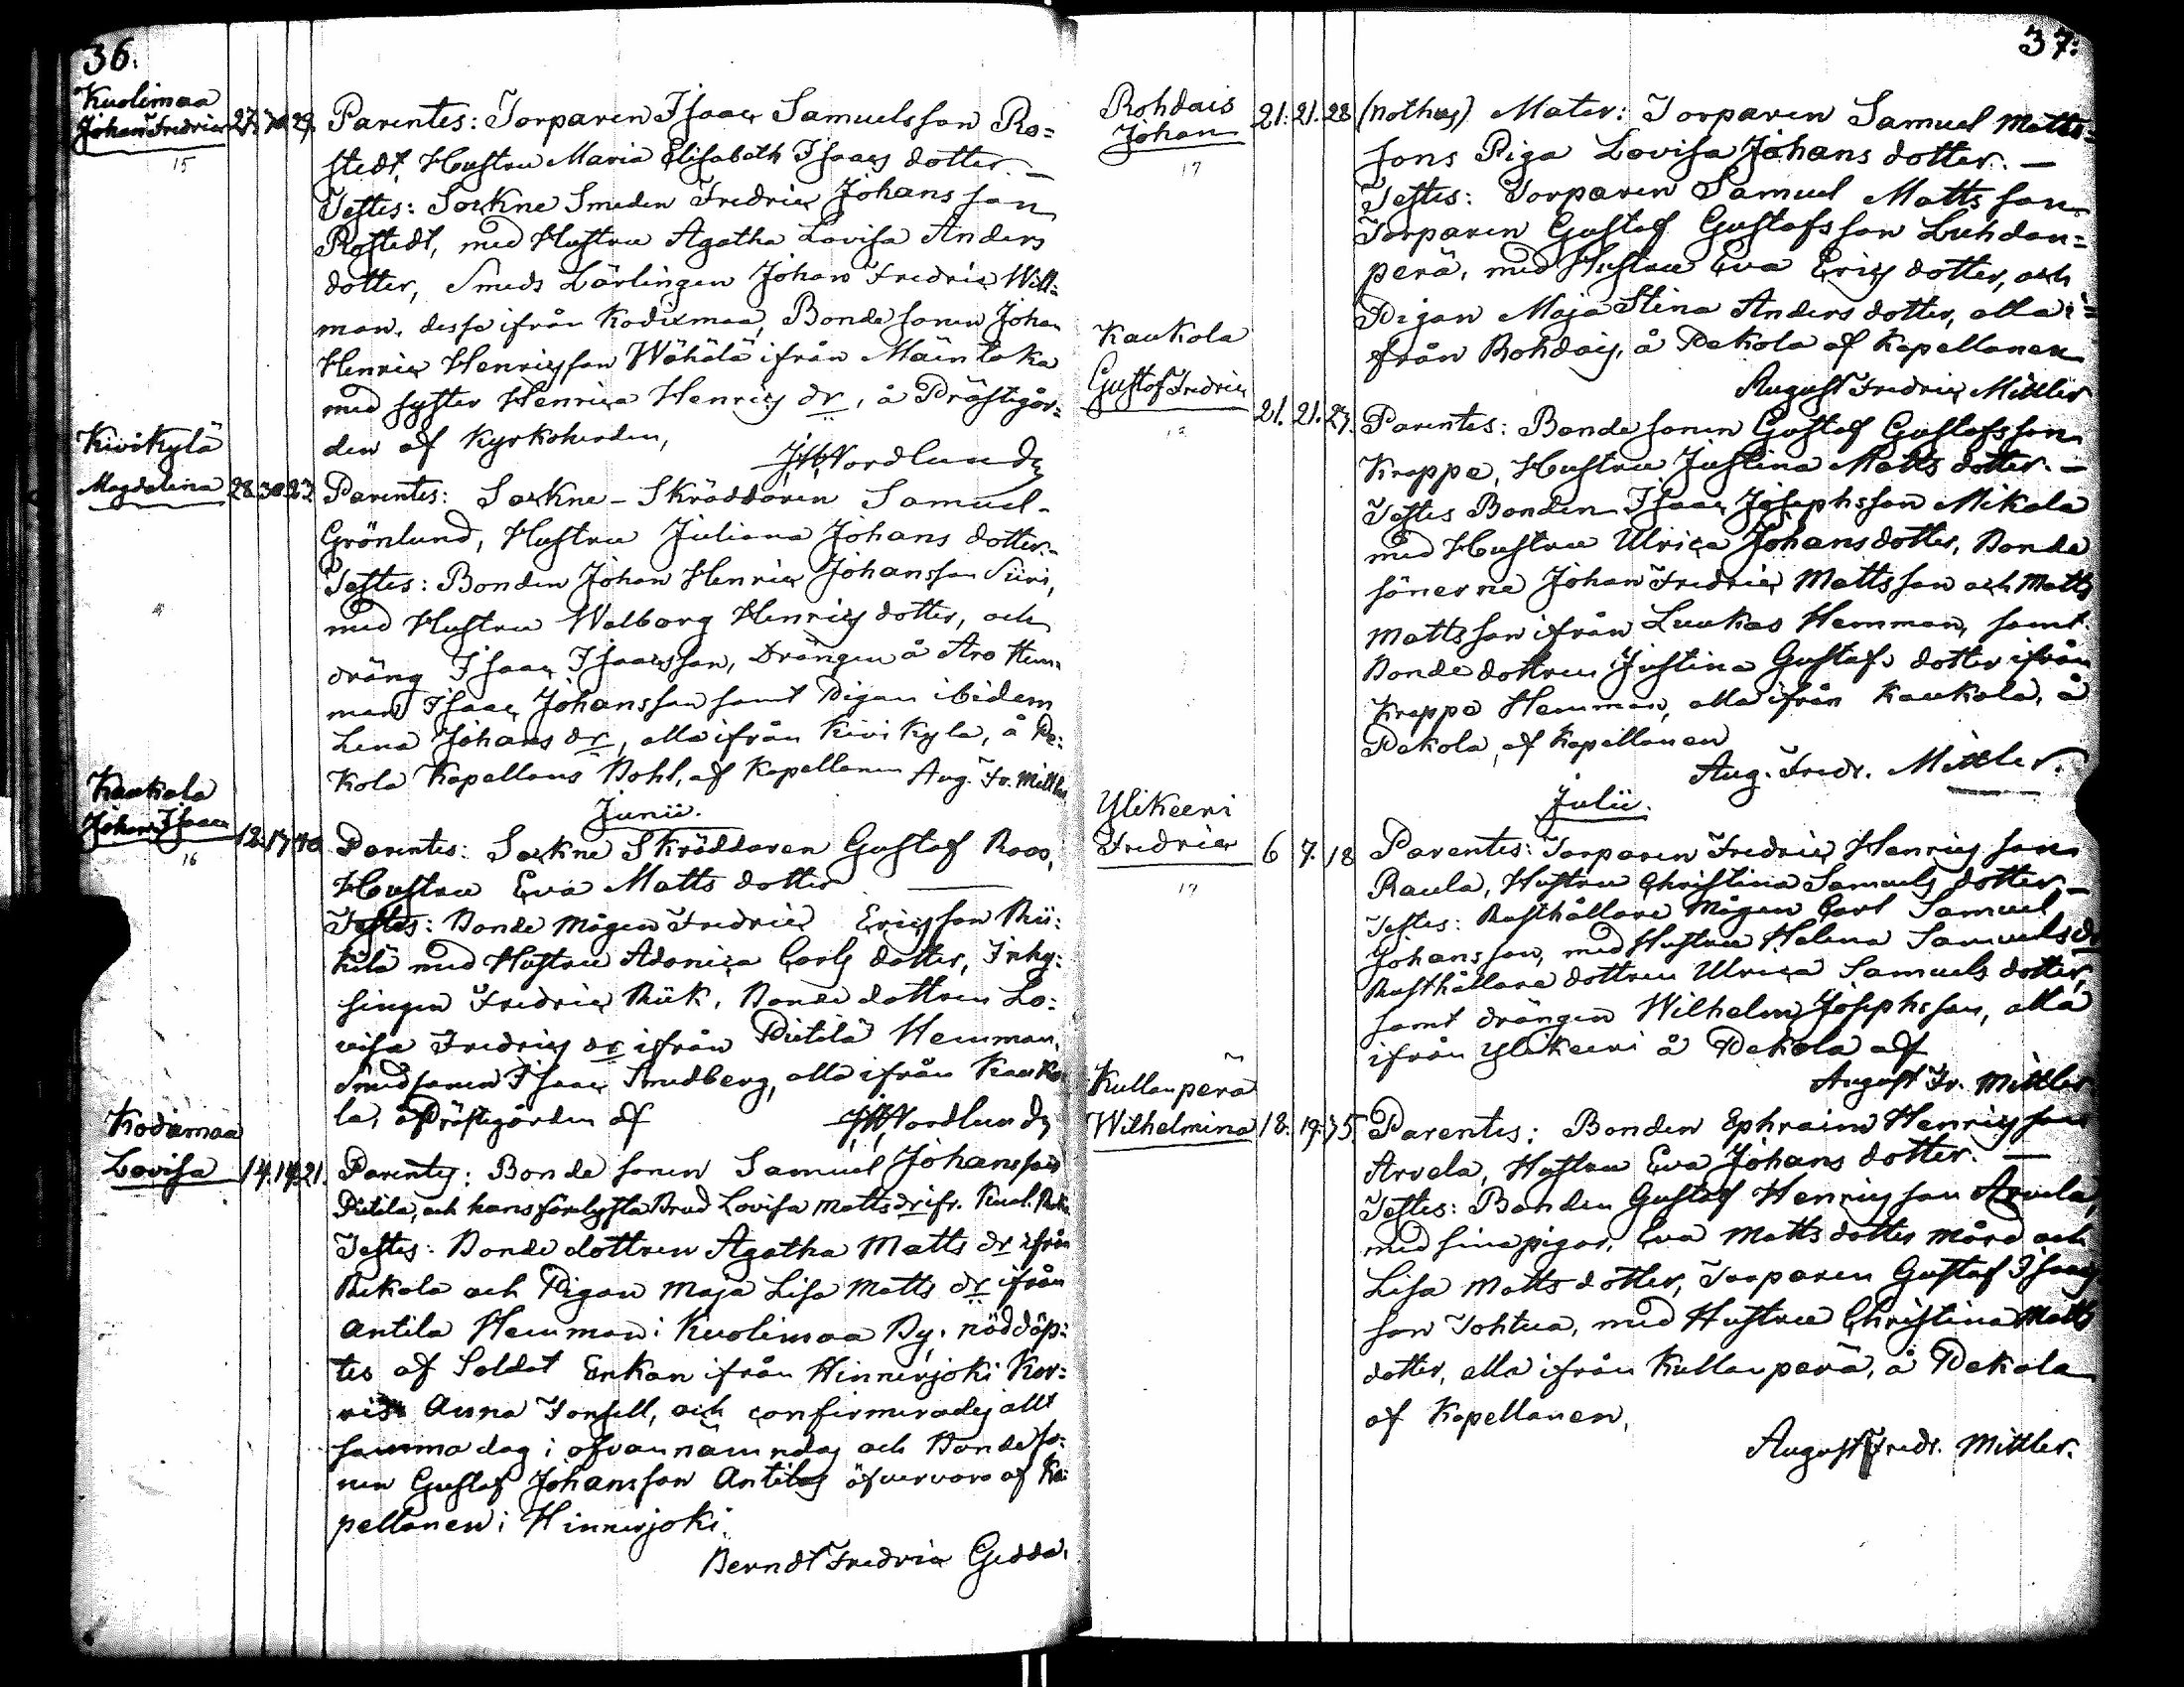 36.
Kuolimaa
Johan Fredric 27. 30 29.
15
Parentes: Torparen Isaac Samuelsson Ro=
stedt, Hustru Maria Elisabeth Isaacs dotter. —
Testes: Sockne Smeden Fredric Johansson
Rostedt, med Hustru Agatha Lovisa Anders
dotter, Smeds Lärlingen Johan Fredric Will=
man, desse ifrån Kodixmaa, Bonde sonen Johan
Henric Henricsson Wähälä ifrån Mäntaka
med syster Henrica Henrics dr, å Prästegår=
den af Kyrkoherden,
Nordlund
Kivikylä
Magdalena 28 30 23
Parentes: Sockne-Skräddaren Samuel
Grönlund, Hustru Juliana Johans dotter.-
Testes: Bonden Johan Henric Johansson Siiri,
med Hustru Walborg Henrics dotter, och
dräng Isaac Isaacsson, Drängen å Aro Hem=
man Isaac Johansson samt Pigan ibidem
Lena Johans dr, alla ifrån Kivikyla, å Pe=
kola Kapellans Bohl, af Kapellanen Aug. Fr. Mittler
Junii.
Kaukola
Johan Isaac 12. 17 40
16
Parentes: Sockne Skräddaren Gustaf Roos,
Hustru Eva Matts dotter —
Testes: Bonde Mågen Fredric Ericsson Rii=
kilä med Hustru Adonica Carls dotter, Inhy=
singen Fredric Riik, Bonde dottren Lo=
visa Fredrics dr ifrån Pietilä Hemman,
Smedsonen Isaac Smedberg, alla ifrån Kauko
la, å Prästegården af Nordlund
Kodixmaa
Lovisa 14. 14. 21.
Parentes: Bonde sonen Samuel Johansson
Pietila, och hans förelysta Brud Lovisa Matts dr ifr. Kuol.
Testes: Bonde dottren Agatha Matts dr ifrån
Rekola och Pigan Maja Lisa Matts dr ifrån
Antila Hemman i Kuolimaa By, nöddöp=
tes af Soldat Enkan ifrån Hinnerjoki Kor=
vist Anna Tonsell, och confirmerades allt
samma dag i ofvannämndas och Bonde so=
nen Gustaf Johansson Antilas öfvervaro af Ka=
pellanen i Hinnerjoki.
Berndt Fredric Gedda.
37.
Rohdais
Johan 21. 21. 28
17
(nothus) Mater: Torparen Samuel Matts=
sons Piga Lovisa Johans dotter. —
Testes: Torparen Samuel Mattsson
Torparen Gustaf Gustafsson Luhdan=
perä, med Hustru Eva Erics dotter, och
Pigan Maja Stina Anders dotter, alla i=
från Rohdais, å Pekola af Kapellanen
August Fredric Mittler
Kaukola
Gustaf Fredric
21. 21. 27.
Parentes: Bonde sonen Gustaf Gustafsson
Krappe, Hustru Justina Matts dotter. —
Testes Bonden Isaac Josephsson Mikola
med Hustru Ulrica Johans dotter, Bonde
sönerne Johan Fredric Mattsson och Matts
Mattsson ifrån Luukas Hemman, samt
Bonde dottren Justina Gustafs dotter ifrån
Krappe Hemman, alla ifrån Kaukola, å
Pekola, af Kapellanen
Aug. Fredr. Mittler.
Julii.
Ylikeeni
Fredric 6 7. 18
17
Parentes: Torparen Fredric Henricsson
Raula, Hustru Christina Samuels dotter —
Testes: Rusthållare Mågen Carl Samuel
Johansson, med Hustru Helena Samuels dr
Rusthållare dottren Ulrica Samuels dotter,
samt drängen Wilhelm Josephsson, alla
ifrån Ylikeeni å Pekola af
August Fr. Mittler
Kullanperä
Wilhelmina 18. 19. 35.
Parentes: Bonden Ephraim Henricsson
Arvela, Hustru Eva Johans dotter. —
Testes: Bonden Gustaf Henricsson Arvela,
med sina pigor, Eva Matts dotter Mård och
Lisa Matts dotter, Torparen Gustaf Isaacs
son Tohtua, med Hustru Christina Matts
dotter, alla ifrån Kullanperä, å Pekola
af Kapellanen,
August Fredr. Mittler.